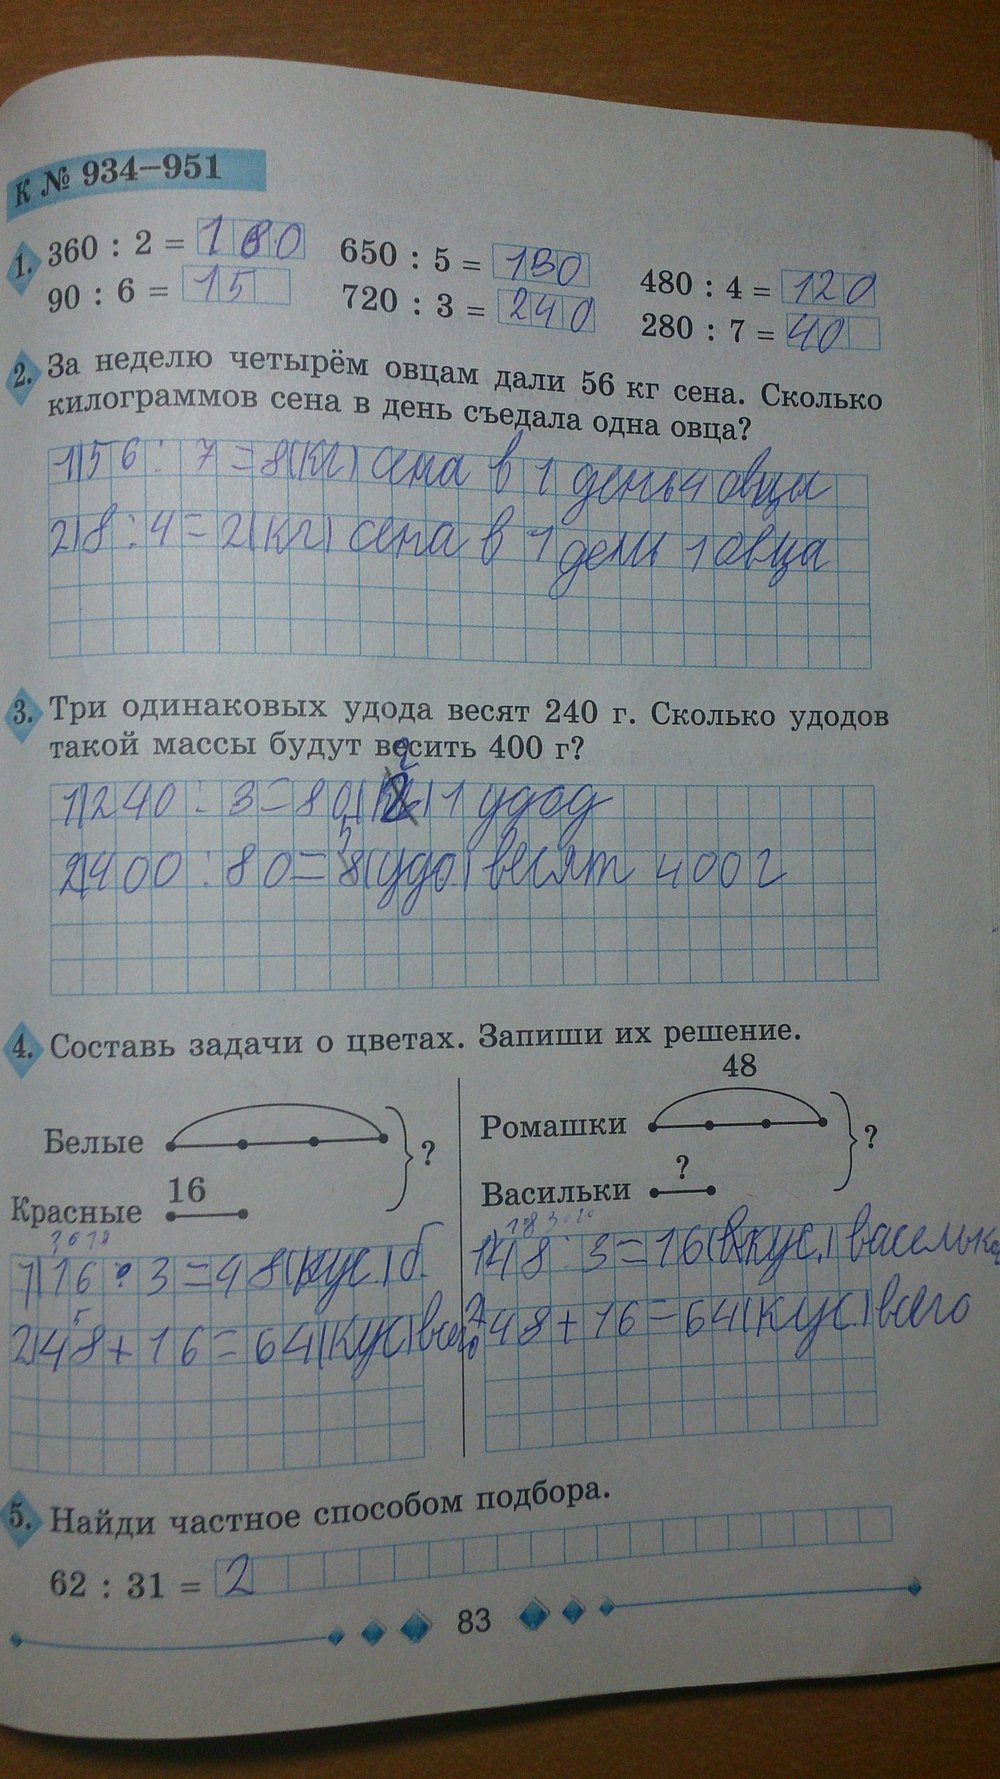 К № 934–951
1. 360 : 2 = 180 650 : 5 = 130 480 : 4 = 120
90 : 6 = 15 720 : 3 = 240 280 : 7 = 40
2. За неделю четырём овцам дали 56 кг сена. Сколько
килограммов сена в день съедала одна овца?
1) 56 : 7 = 8 (кг) сена в 1 день 4 овцы
2) 8 : 4 = 2 (кг) сена в 1 день 1 овца
3. Три одинаковых удода весят 240 г. Сколько удодов
такой массы будут весить 400 г?
1) 240 : 3 = 80 (г) 1 удод
2) 400 : 80 = 5 (удо.) весят 400 г
4. Составь задачи о цветах. Запиши их решение.
Белые ?
Красные 16
1) 16 · 3 = 48 (кус.) б.
2) 48 + 16 = 64 (кус) всего
48
Ромашки ?
Васильки ?
1) 48 : 3 = 16 (кус.)
2) 48 + 16 = 64 (кус.) всего
5. Найди частное способом подбора.
62 : 31 = 2
83